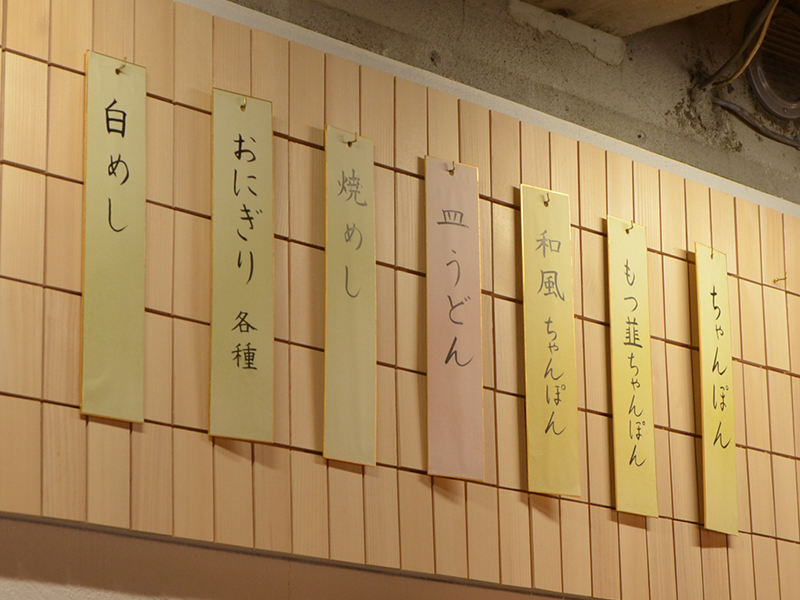 ちゃんぽん
もつ韮ちゃんぽん
和風ちゃんぽん
皿うどん
焼めし
おにぎり 各種
白めし